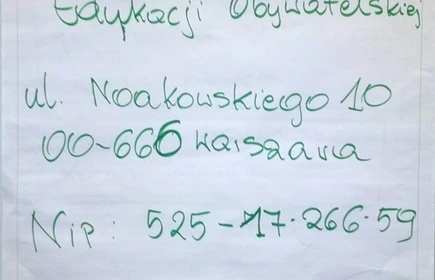 Edukacji Obywatelskiej
ul. Noakowskiego 10
00-666 Warszawa
Nip: 525-17-266-59